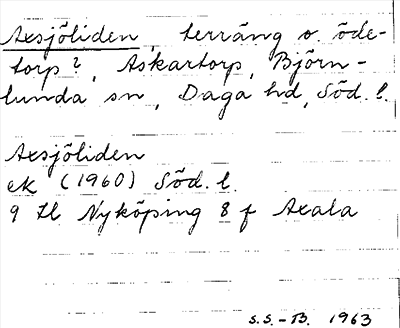 Axsjöliden, terräng o. öde-
torp?, Askartorp, Björn-
lunda sn, Daga hd, Söd. l.
Axsjöliden
ek (1960) Söd. l.
9 H Nyköping 8 f Axala
S.S.-B. 1963